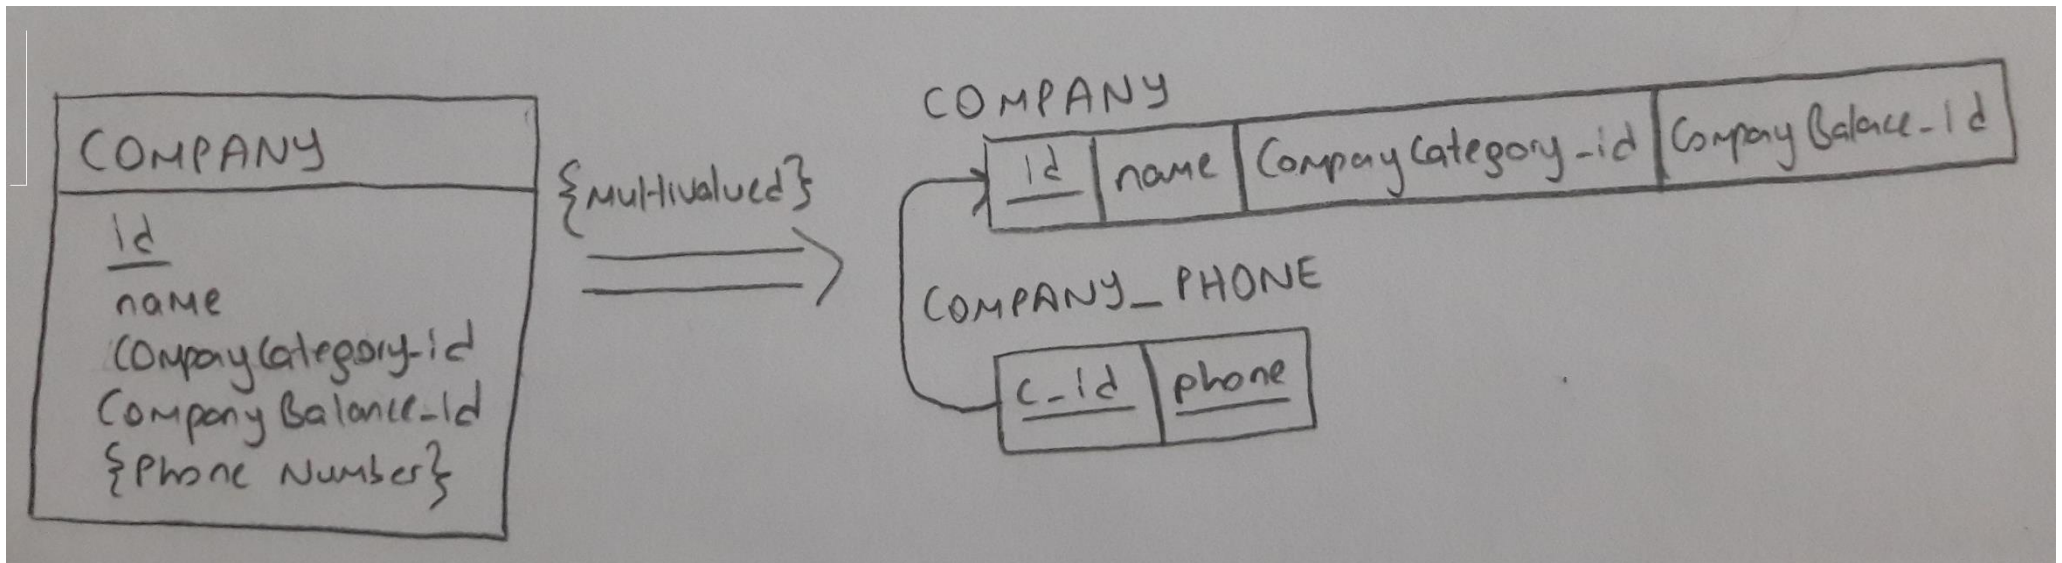 COMPANY
Id
name
CompayCategory-id
Company Balance-Id
{Phone Number}
{Multivalued}
COMPANY
Id name CompayCategory-id Compay Balace-Id
COMPANY_PHONE
c-Id phone